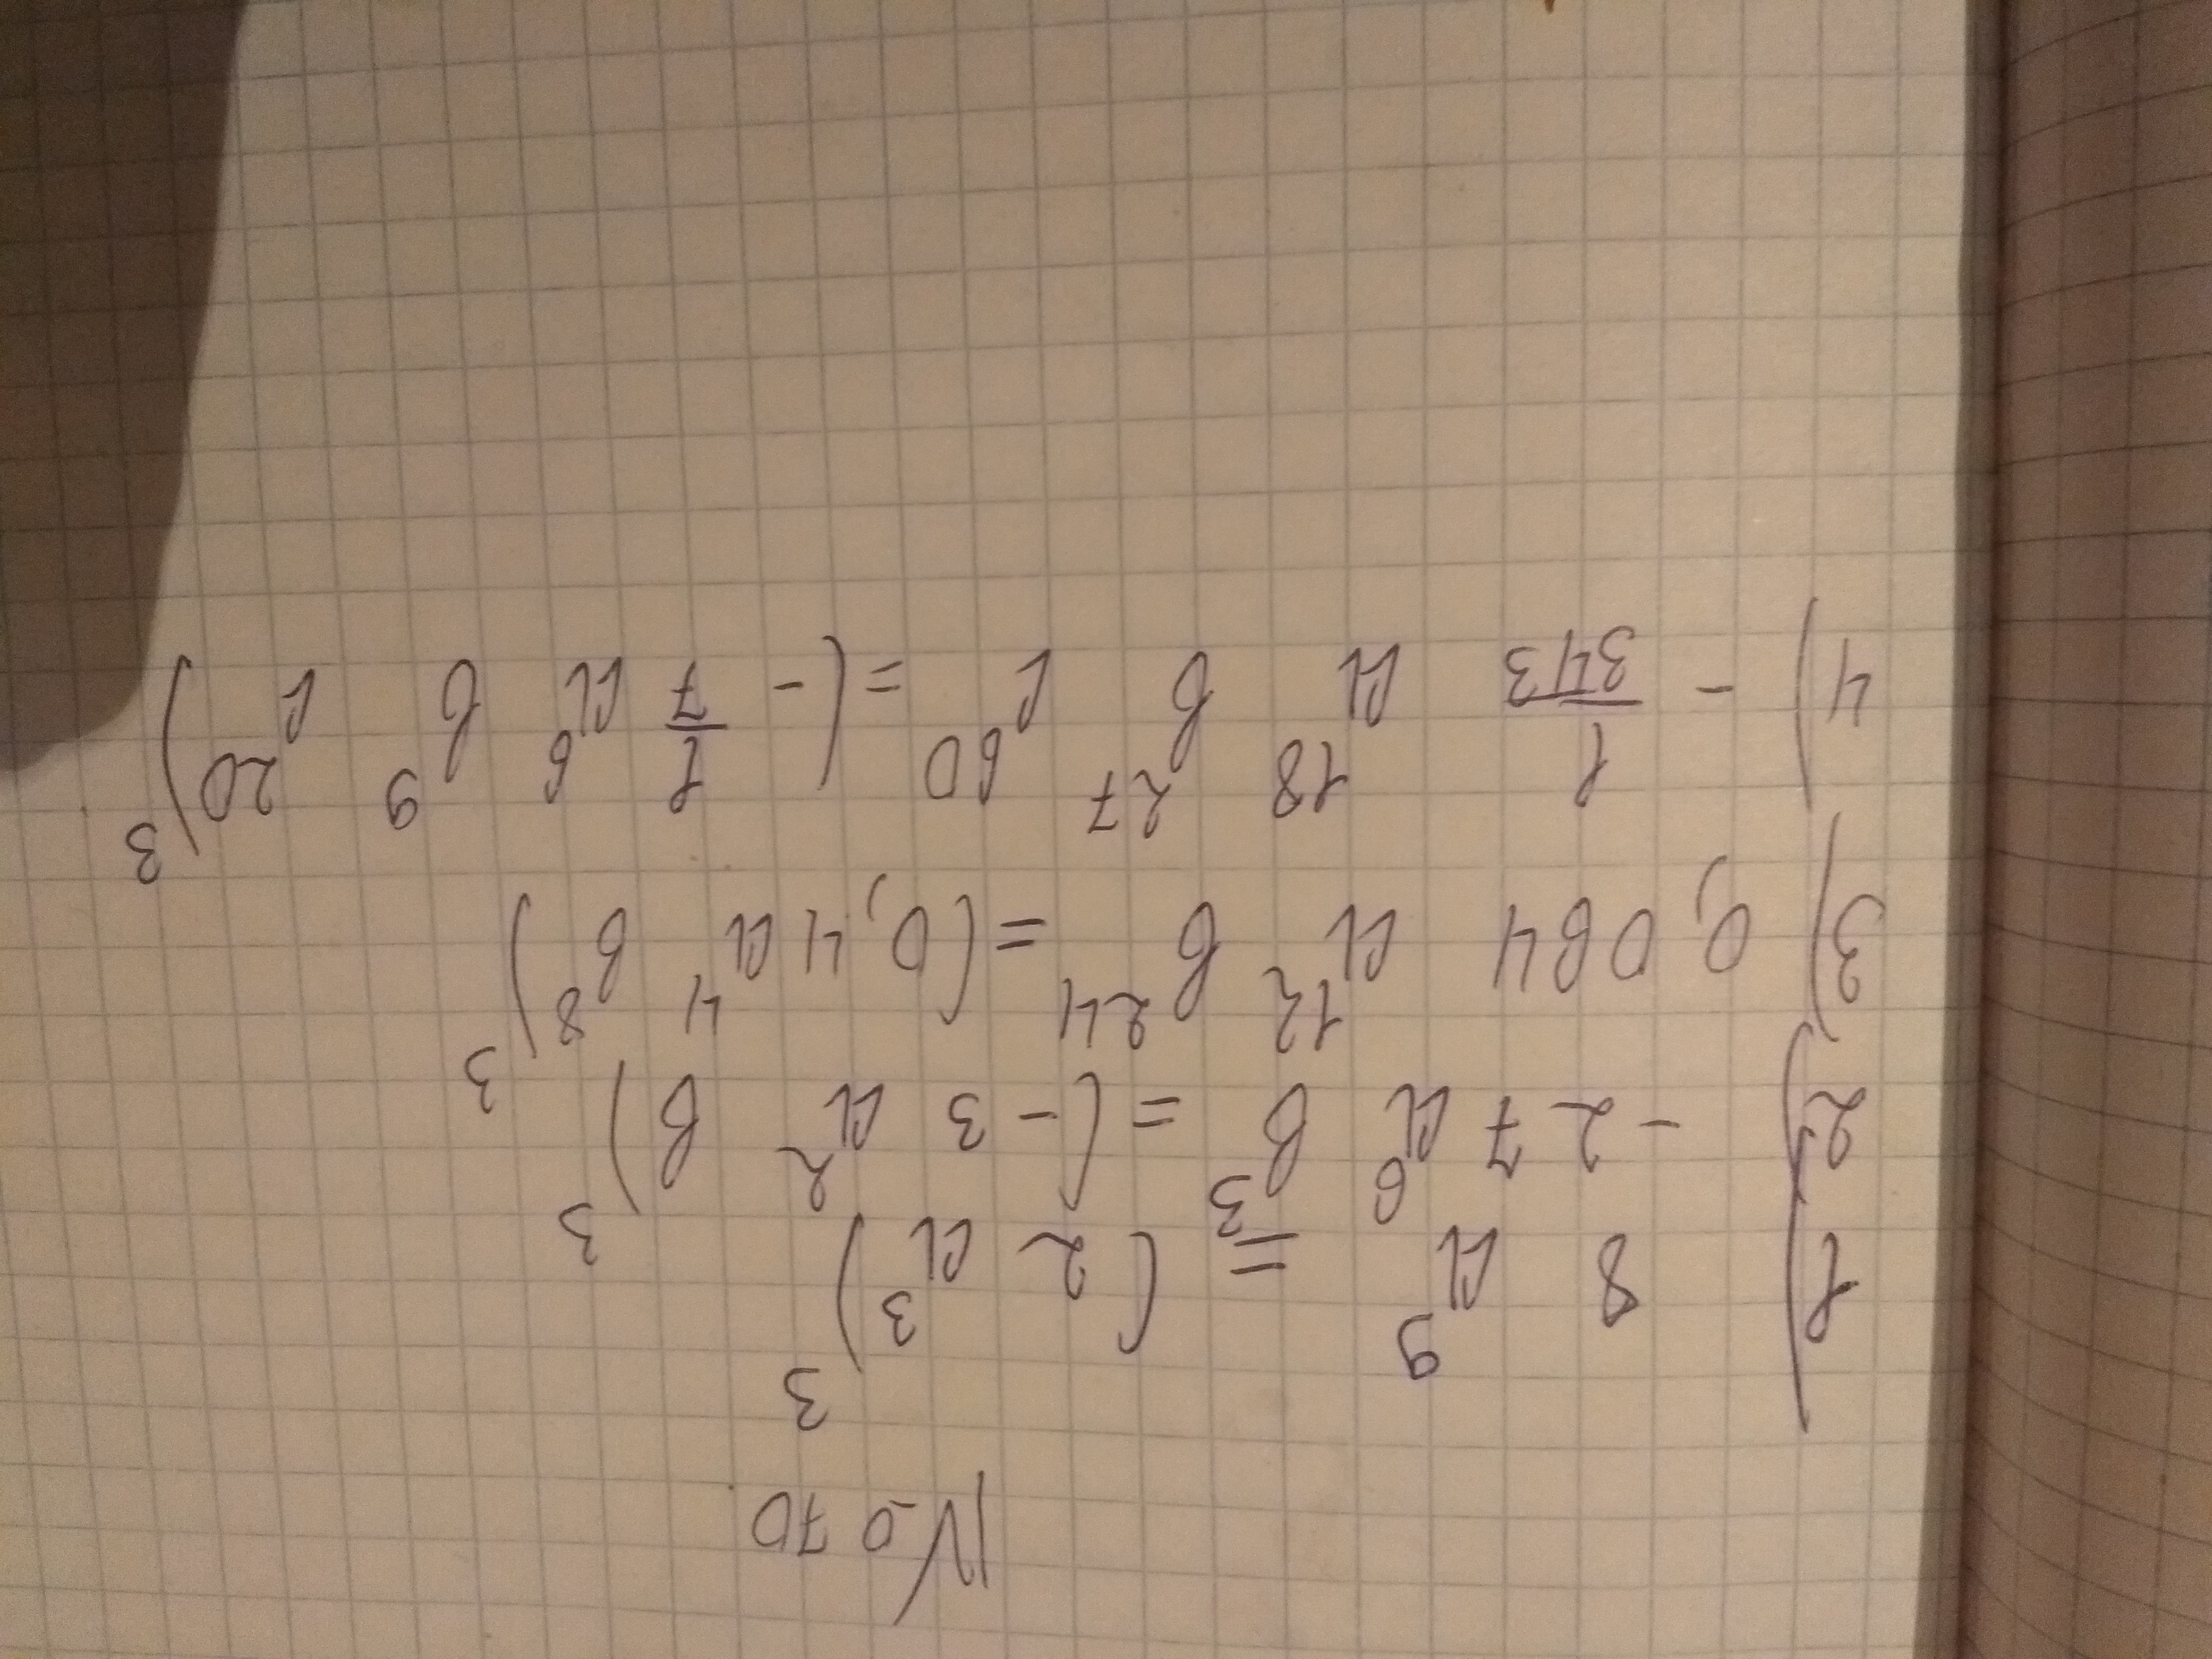 № 70
1) 8a⁹ = (2a³)³
2) -27a⁶b³ = (-3a²b)³
3) 0,064a¹²b²⁴ = (0,4a⁴b⁸)³
4) -1/343 a¹⁸b²⁷c⁶⁰ = (-1/7 a⁶b⁹c²⁰)³